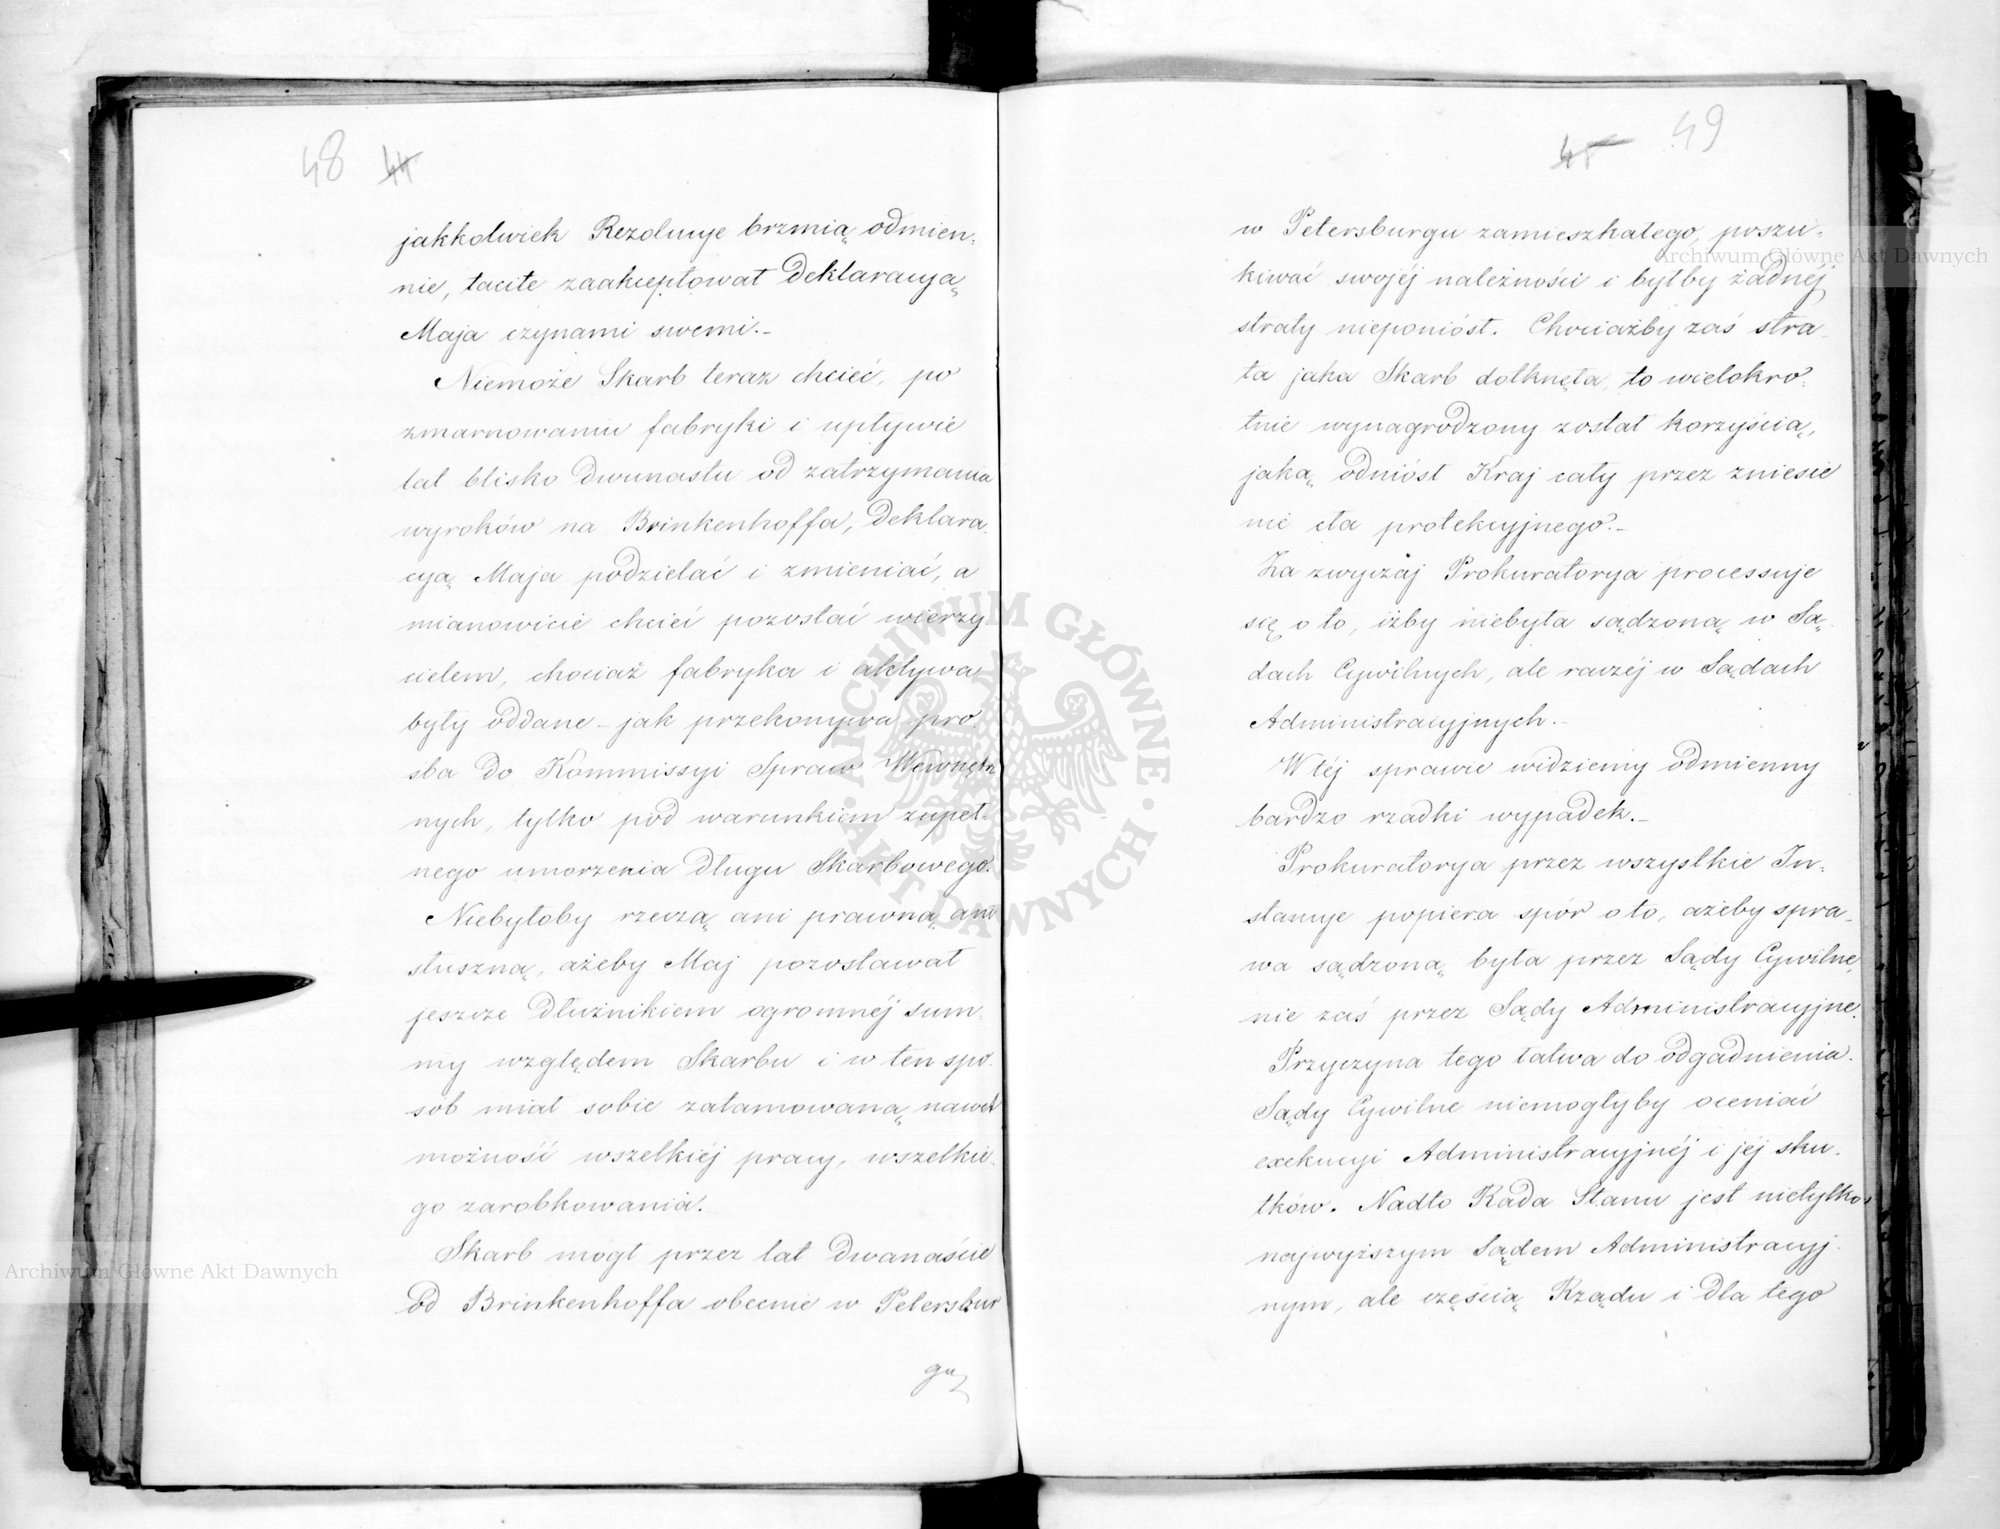 48 44
jakkolwiek Rezolucye brzmią odmien-
nie, tacite zaakceptował Deklaracyą
Maja czynami swemi.-
Niemoże Skarb teraz chcieć, po
zmarnowaniu fabryki i upływie
lat blisko dwunastu od zatrzymania
wyroków na Brinkenhoffa, Deklara-
cyą Maja podzielać i zmieniać, a
mianowicie chcieć pozostać wierzy
cielem, chociaż fabryka i aktywa
były oddane - jak przekonywa pro-
sba do Kommissyi Spraw Wewnętrz
nych, tylko pod warunkiem zupeł-
nego umorzenia Długu Skarbowego.
Niebyłoby rzeczą ani prawną ani
słuszną, ażeby Maj pozostawał
jeszcze Dłużnikiem ogromnéj sum-
my względem Skarbu i w ten spo-
sób miał sobie zatamowaną nawet
możność wszelkiéj pracy, wszelkie-
go zarobkowania.-
Skarb mógł przez lat Dwanaście
od Brinkenhoffa obecnie w Petersbur
gu
45 49
w Petersburgu zamieszkałego, poszu-
kiwać swojéj należności i byłby żadnéj
straty nieponiósł. Chociażby zaś stra-
ta jaka Skarb dotknęła, to wielokro-
tnie wynagrodzony został korzyścią,
jaką odniósł Kraj cały przez zniesie
nie cła protekcyjnego.-
Za zwyczaj Prokuratorya processuje
się o to, iżby niebyła sądzoną w Są-
dach Cywilnych, ale raczéj w Sądach
Administracyjnych.-
W téj sprawie widziemy odmienny
bardzo rzadki wypadek.-
Prokuratorya przez wszystkie In-
stancye popiera spór o to, ażeby spra-
wa sądzoną była przez Sądy Cywilne,
nie zaś przez Sądy Administracyjne.
Przyczyna tego łatwa do odgadnienia.
Sądy Cywilne niemogłyby oceniać
exekucyi Administracyjnéj i jéj sku-
tków. Nadto Rada Stanu jest nietylko
najwyższym Sądem Administracyj-
nym, ale częścią Rządu i dla tego
Archiwum Główne Akt Dawnych
Archiwum Główne Akt Dawnych
ARCHIWUM GŁÓWNE · AKT DAWNYCH ·